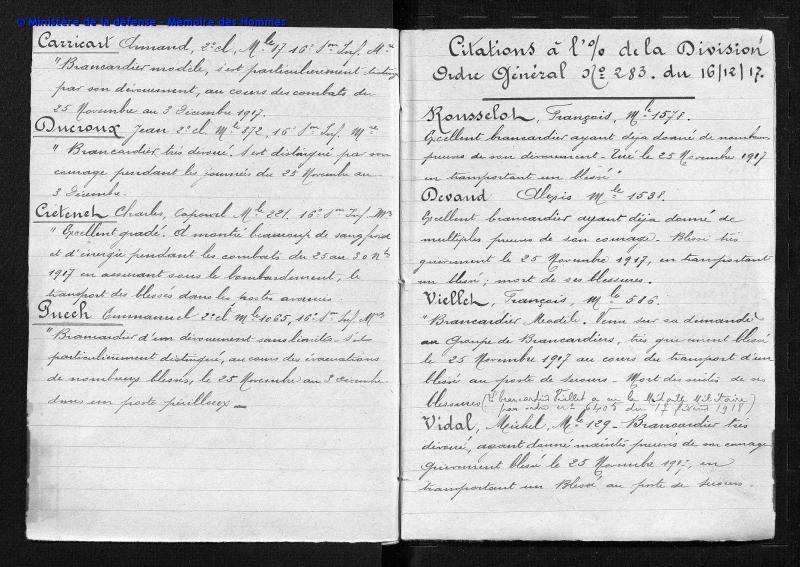 © Ministère de la défense - Mémoire des Hommes
Carricart Armand, 2e cl, Mle 17 16e Son Inf. Mre
"Brancardier modèle, s'est particulièrement distingué
par son dévouement, au cours des combats du
25 Novembre au 3 Décembre 1917.
Ducroux Jean 2e cl. Mle 872, 16e Son Inf. Mre
"Brancardier très dévoué. S'est distingué par son
courage pendant les journées du 25 Novembre au
3 Décembre.
Crétenet Charles, caporal Mle 221. 16e Son Inf. Mre
"Excellent gradé. A montré beaucoup de sang froid
et d'énergie pendant les combats du 25 au 30 Nbre
1917 en assurant sous le bombardement, le
transport des blessés dans les postes avancés
Puech Emmanuel 2e cl Mle 1065, 16e Son Inf. Mres
"Brancardier d'un dévouement sans limites. S'est
particulièrement distingué, au cours des évacuations
de nombreux blessés, le 25 Novembre au 3 Décembre
dans un poste périlleux —
Citations à l'% de la Division
Ordre Général No 283. du 16/12/17.
Rousselot, François, Mle 1578.
Excellent brancardier ayant déja donné de nombreuses
preuves de son dévouement. Tué le 25 Novembre 1917
en transportant un blessé"
Devaud Alexis Mle 1538.
Excellent brancardier ayant déja donné de
multiples preuves de son courage. Blessé très
grièvement le 25 Novembre 1917, en transportant
un blessé ; mort de ses blessures.
Viellet, François, Mle 586.
"Brancardier Modèle. Venu sur sa demande
au Groupe de Brancardiers, très grièvement blessé
le 25 Novembre 1917 au cours de transport d'un
blessé au poste de secours - Mort des suites de ses
blessures (Le brancardier Viellet a eu la Médaille Militaire
par ordre No 6405 du 17 février 1918)
Vidal, Michel, Mle 129 - Brancardier très
dévoué, ayant donné maintes preuves de son courage
Grièvement blessé le 25 Novembre 1917, en
transportant un Blessé au poste de secours.